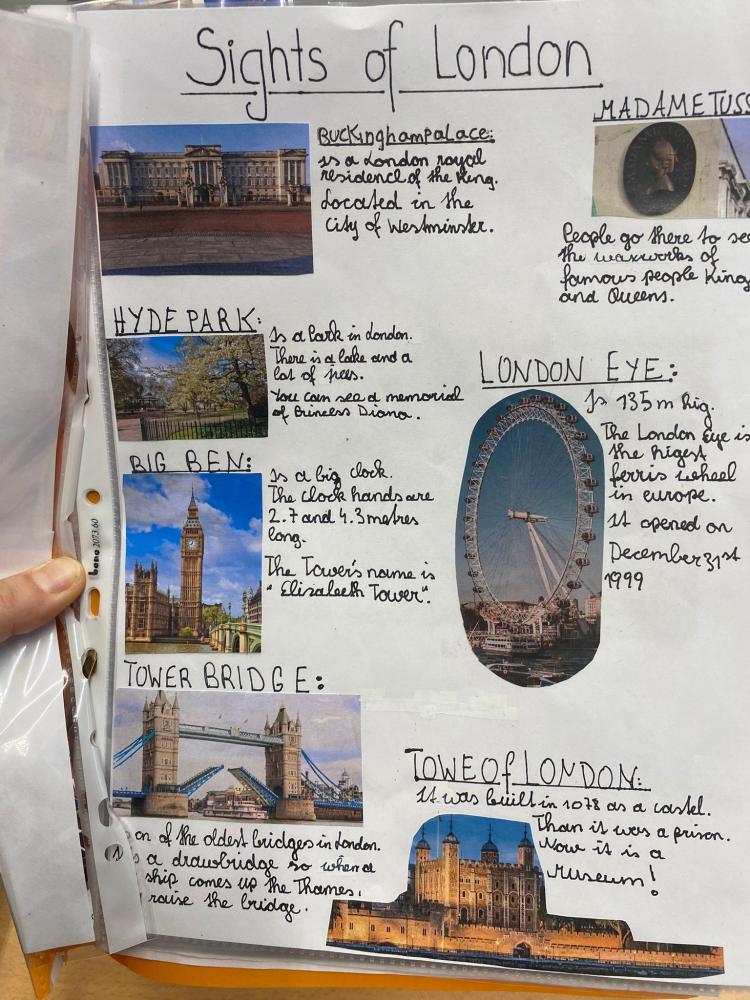 Sights of London
Buckinghampalace:
is a London royal
residence of the King.
Located in the
City of Westminster.
MADAME TUSS
People go there to se
the waxworks of
famous people King
and Queens.
HYDE PARK:
Is a Park in London.
There is a lake and a
lot of trees.
You can see a memorial
of Princess Diana.
LONDON EYE:
Is 135m hig.
The London Eye is
the higest
ferris wheel
in europe.
It opened on
December 31st
1999
BIG BEN:
Is a big clock.
The clock hands are
2.7 and 4.3 metres
long.
The Tower's name is
"Elisabeth Tower".
TOWER BRIDGE:
on of the oldest bridges in London.
a drawbridge so when a
ship comes up the Thames,
raise the bridge.
TOWE Of LONDON:
It was built in 1078 as a castel.
Than it was a prison.
Now it is a
Museum!